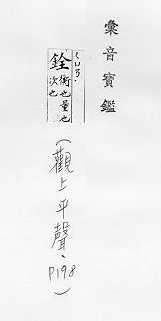 彙音寶鑑
ㄑㄩㄢˊ
銓
衡也量也
次也
(觀上平聲、P198)